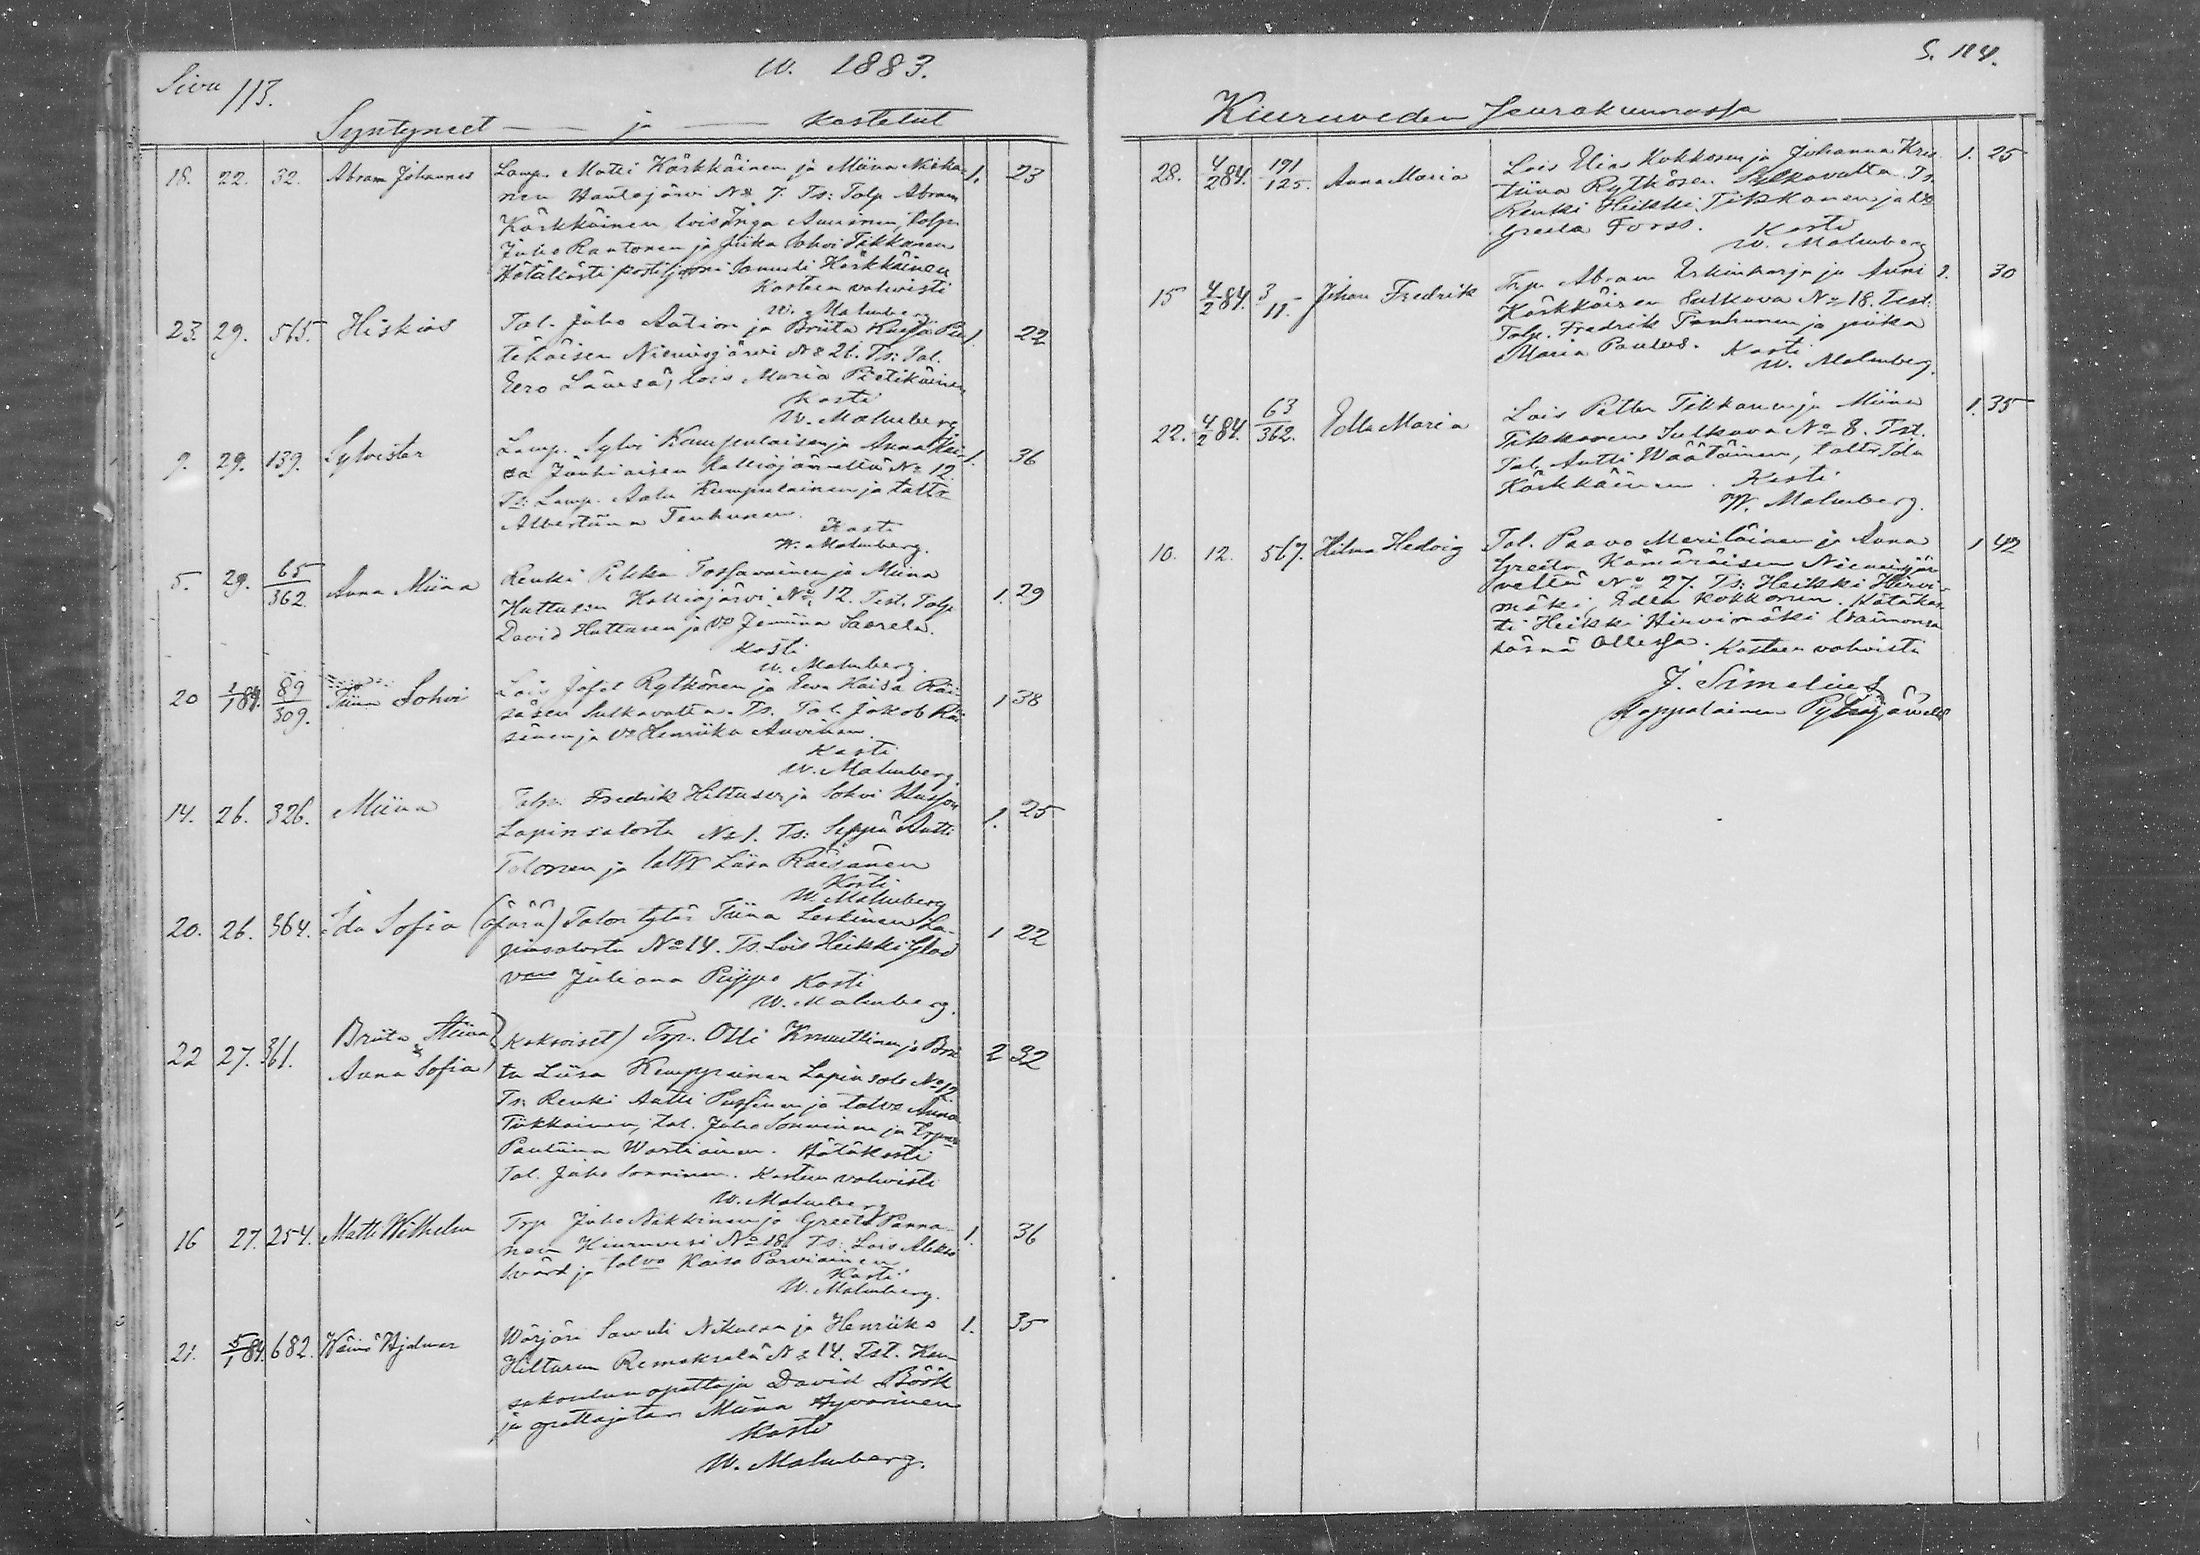 Sivu 113.
w. 1883.
Syntyneet — ja — kastetut
18. 22. 32. Abram Johannes Lamp. Matti Kärkkäinen ja Miina Niska- 1. 23
nen Hautajärvi No 7. Ts: Talp Abram
Kärkkäinen, lois Inga Anninen, talp.
Juho Rautonen ja piika Sohvi Tikkanen
Hätäkasti postiljooni Samuli Kärkkäinen
Kasteen vahvisti
W. Malmberg
23. 29. 565. Hiskias Tal. Juho Ration ja Briita Kaisa Pie- 1. 22
tikäisen Niemisjärvi No 21. Ts: Tal.
Eero Lämsä, lois Maria Pietikäinen
Kasti
W. Malmberg
9. 29. 139. Sylvester Lamp. Sylv. Kumpulaisen ja Anna Kai- 1. 36
sa Jauhiaisen Kalliojärveltä No 12.
Ts: Lamp. Aatu Kumpulainen ja taltr
Albertiina Tenhunen.
Kasti
W. Malmberg.
5. 29. 65/362. Anna Miina Renki Pekka Tossavainen ja Miina 1. 29
Huttusen Kalliojärvi No 12. Test. Talp
David Huttunen ja vo Jemina Saarela.
Kasti
W. Malmberg.
20 1/1 84. 89/309. Tiina Sohvi Lois Josef Rytkönen ja Eva Kaisa Räi- 1 38
säsen Sulkavalta. Ts. Tal. Jakob Räi-
sänen ja vo Henriika Anvinen.
Kasti
W. Malmberg.
14. 26. 326. Miina Talp. Fredrik Hiltusen ja Sohvi Husson 1. 25
Lapinsalosta No 1. Ts: Seppä Antti
Tolonen ja taltr Liisa Räisänen
Kasti
W. Malmberg
20. 26. 364. Ida Sofia (äpärä) Talon tytär Tiina Leskinen La- 1 22
pinsalosta No 14. Ts. Lois Heikki Glad
vmo Juliana Piippo Kasti
W. Malmberg.
22 27. 361. Briita Stiina & Anna Sofia (kaksoiset) Trp. Olli Knuuttinen ja Brii- 2 32
ta Liisa Kemppainen Lapinsalo No 12
Ts: Renki Antti Pussinen ja talvo Anna
Tikkainen, tal. Juho Sonninen ja trpvo
Pauliina Wartiainen. Hätäkasti
Tal. Juho Sonninen. Kasteen vahvisti
W. Malmberg
16 27. 254. Matti Wilhelm Trp Juho Nikkinen ja Greeta Panna- 1. 36
nen Kiuruvesi No 18. Ts: Lois Aleks
Svärd ja talvo Kaisa Parviainen
Kasti
W. Malmberg.
21. 5/1 84. 682. Wäinö Hjalmar Wärjäri Sawuli Nikulan ja Henriika 1. 35
Hiltusen Remeksela No 14. Tst. Kan-
sakoulunopettaja David Böök
ja opettajatar Miina Hyvärinen
Kasti
W. Malmberg.
S. 114.
Kiuruweden seurakunnassa
28. 4/2 84. 191/125. Anna Maria Lois Elias Kokkosen ja Johanna Kris 1. 25
tiina Rytkösen Sulkavalta Ts.
Renki Heikki Tikkanen ja vo
Greeta Forss. Kasti
W. Malmberg
15 4/2 84. 3/11. Johan Fredrik Trp. Abram Erkinharju ja Anni 1. 30
Kärkkäisen Sulkava No 18. Test:
Talp. Fredrik Tenhunen ja piika
Maria Paulus. Kasti
W. Malmberg.
22. 4/2 84. 63/362. Edla Maria Lois Petter Tikkanen ja Miina 1. 35
Tikkanen Sulkava No 8. Tst.
Tal. Antti Wäätäinen, taltr Ida
Kärkkäinen. Kasti
W. Malmberg.
10. 12. 567. Hilma Hedvig Tal. Paavo Meriläinen ja Anna 1 42
Greeta Kämäräisen Niemisjär-
veltä No 27. Ts: Heikki Hirvi-
mäki, Edla Kokkonen. Hätäkas-
ti Heikki Hirvimäki Waimonsa
läsnä ollessa. Kasteen vahvisti
J. Simelius
Kappalainen Pyhäjärvellä